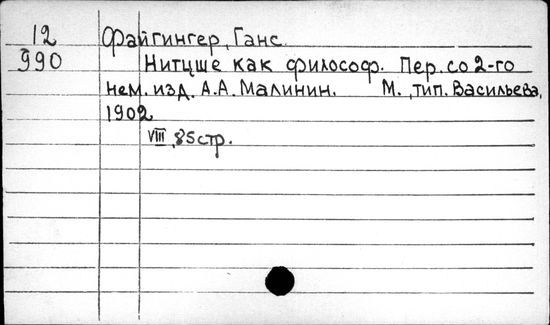 12 Файгингер, Ганс.
990 Нитцше как философ. Пер. со 2-го
нем. изд. А.А. Малинин. М., тип. Васильева,
1902
VIII, 85 стр.